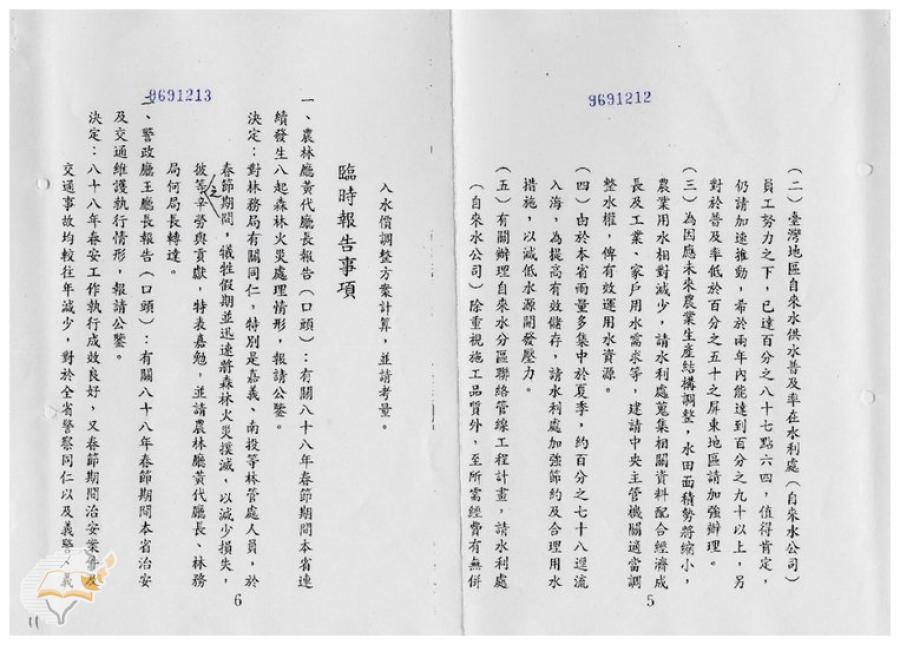 9691212
(二)臺灣地區自來水供水普及率在水利處(自來水公司)
員工努力之下,已達百分之八十七點六四,值得肯定,
仍請加速推動,希於兩年內能達到百分之九十以上,另
對於普及率低於百分之五十之屏東地區請加強辦理。
(三)為因應未來農業生產結構調整,水田面積勢將縮小,
農業用水相對減少,請水利處蒐集相關資料配合經濟成
長及工業、家戶用水需求等,建請中央主管機關適當調
整水權,俾有效運用水資源。
(四)由於本省雨量多集中於夏季,約百分之七十八逕流
入海,為提高有效儲存,請水利處加強節約及合理用水
措施,以減低水源開發壓力。
(五)有關辦理自來水分區聯絡管線工程計畫,請水利處
(自來水公司)除重視施工品質外,至所需經費有無併
5
9691213
入水價調整方案計算,並請考量。
臨時報告事項
一、農林廳黃代廳長報告(口頭):有關八十八年春節期間本省連
續發生八起森林火災處理情形,報請公鑒。
決定:對林務局有關同仁,特別是嘉義、南投等林管處人員,於
春節期間,犧牲假期並迅速將森林火災撲滅,以減少損失,
彼等之辛勞與貢獻,特表嘉勉,並請農林廳黃代廳長、林務
局何局長轉達。
二、警政廳王廳長報告(口頭):有關八十八年春節期間本省治安
及交通維護執行情形,報請公鑒。
決定:八十八年春安工作執行成效良好,又春節期間治安案件及
交通事故均較往年減少,對於全省警察同仁以及義警、義
6
11